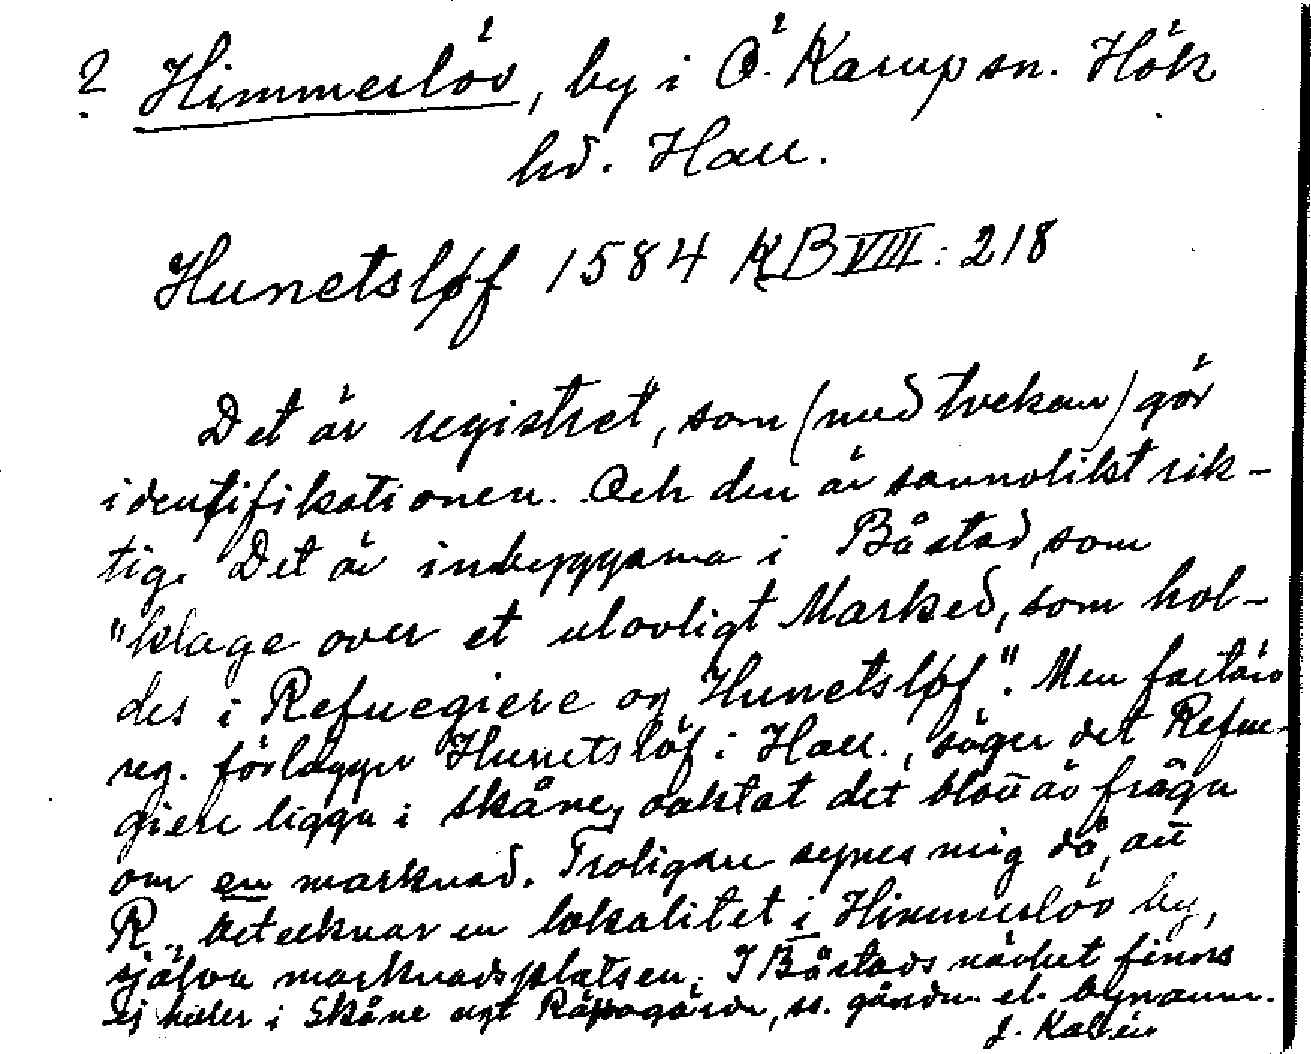 ? Himmerslöv, by i Ö. Karup sn. Hök
hd. Hall.
Hunetsløf 1584 KB VIII: 218
Det är registret, som (med tvekan) gör
identifikationen. Och den är sannolikt rik-
tig. Det är inbyggarna i Båstad, som
"klage over et ulovligt Marked, som hol-
des i Refnegiere og Hunetsløf". Men
reg. förlägger Hunetslöf i Hall., säger det Refne-
giere ligga i Skåne, oaktat det blott är fråga
om en marknad. Troligare synes mig då, att
R. betecknar en lokalitet i Himmerslöv by,
själva marknadsplatsen. I Båstads närhet finns
ej heller i Skåne ngt el. bynamn.